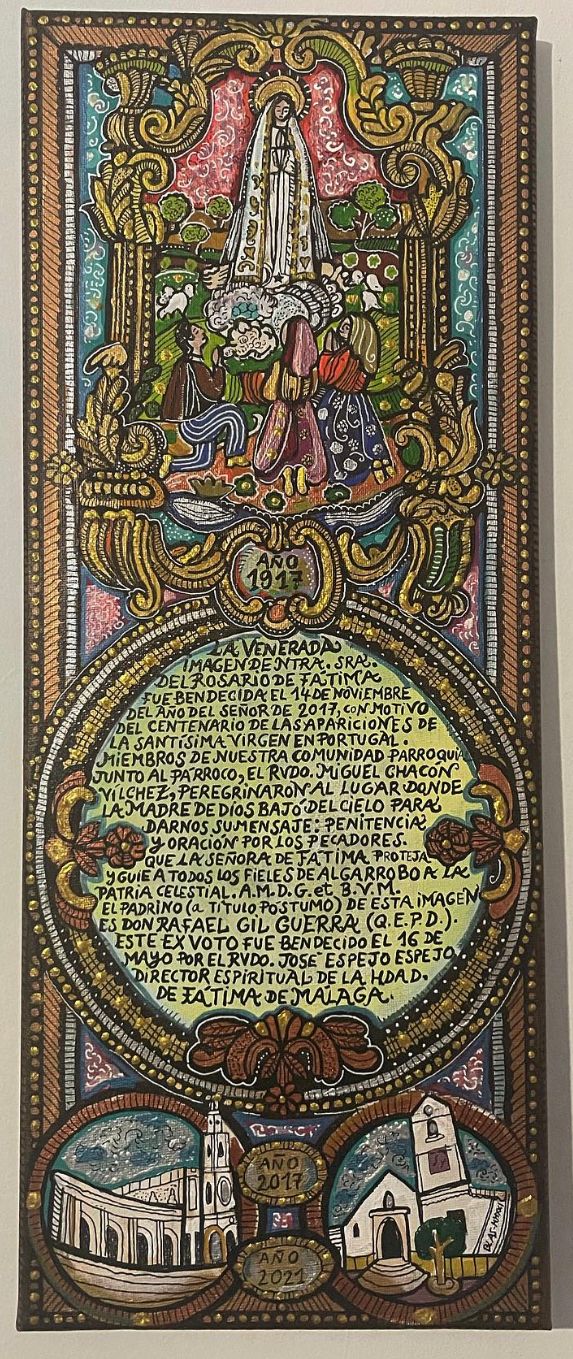 AÑO
1917
LA VENERADA
IMAGEN DE NTRA. SRA.
DEL ROSARIO DE FÁTIMA
FUE BENDECIDA EL 14 DE NOVIEMBRE
DEL AÑO DEL SEÑOR DE 2017, CON MOTIVO
DEL CENTENARIO DE LAS APARICIONES DE
LA SANTÍSIMA VIRGEN EN PORTUGAL.
MIEMBROS DE NUESTRA COMUNIDAD PARROQUIAL
JUNTO AL PÁRROCO, EL RVDO. MIGUEL CHACÓN
VILCHEZ, PEREGRINARON AL LUGAR DONDE
LA MADRE DE DIOS BAJÓ DEL CIELO PARA
DARNOS SU MENSAJE: PENITENCIA
Y ORACIÓN POR LOS PECADORES.
QUE LA SEÑORA DE FÁTIMA PROTEJA
Y GUIE A TODOS LOS FIELES DE ALGARROBO A LA
PATRIA CELESTIAL. A.M.D.G. et B.V.M.
EL PADRINO (a TITULO POSTUMO) DE ESTA IMAGEN
ES DON RAFAEL GIL GUERRA (Q.E.P.D.).
ESTE EX VOTO FUE BENDECIDO EL 16 DE
MAYO POR EL RVDO. JOSÉ ESPEJO ESPEJO,
DIRECTOR ESPIRITUAL DE LA HDAD.
DE FÁTIMA DE MÁLAGA.
AÑO
2017
AÑO
2021